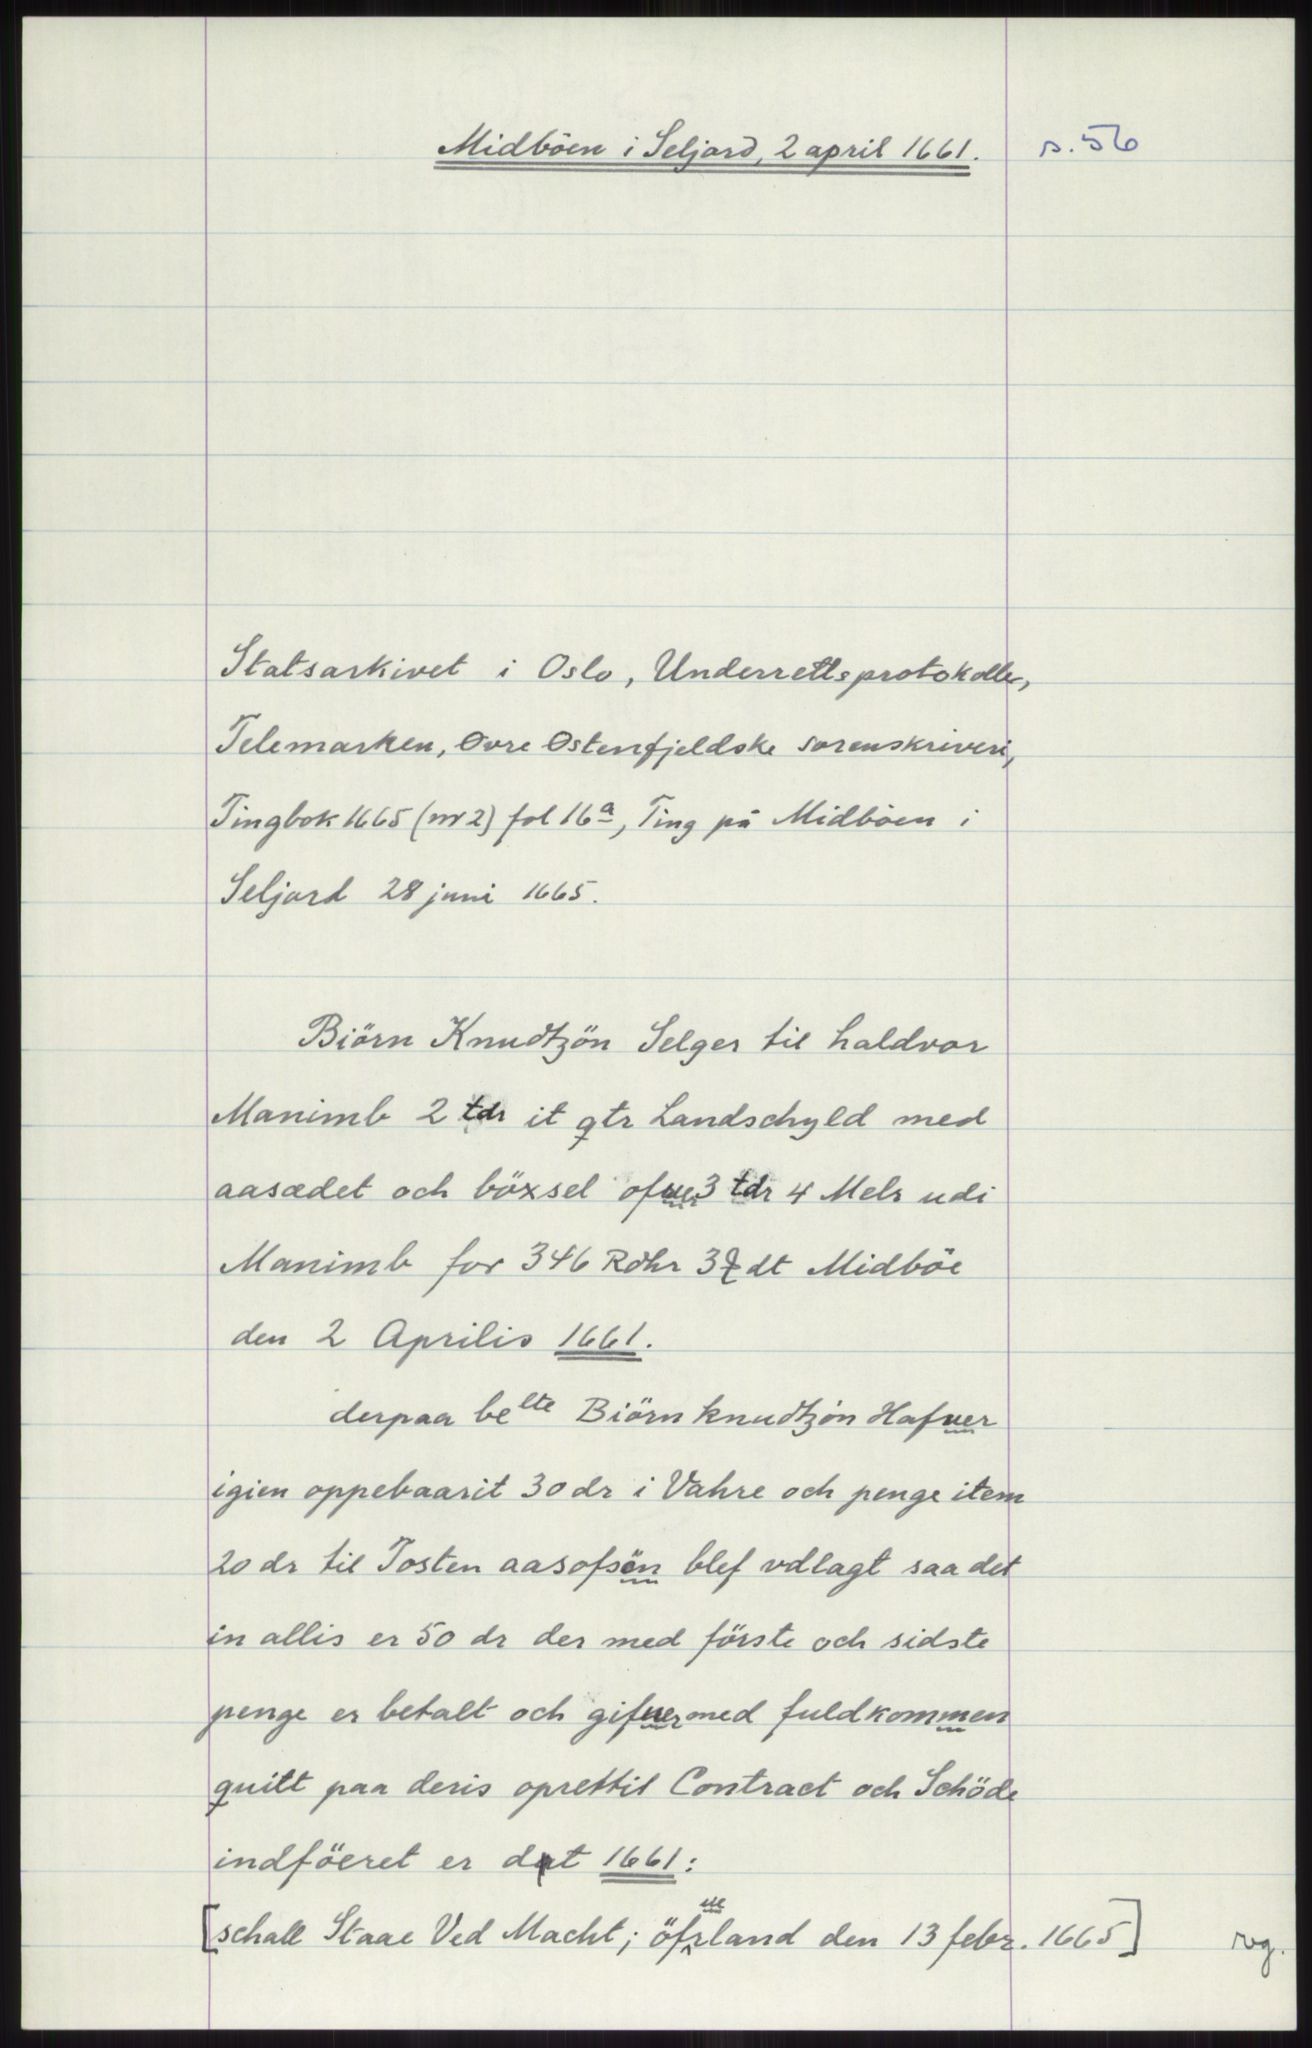 Midböen i Seljord, 2 april 1661. s. 56
Statsarkivet i Oslo, Underrettsprotokoller,
Telemarken, Øvre Østenfjeldske sorenskriveri,
Tingbok 1665 (nr 2) fol 16a, Ting på Midböen i
Seljord 28 juni 1665.
Biörn Knudtzön Selger til haldvor
Manimb 2 tdr it qtr Landschyld med
aasædet och böxsel ofuer 3 tdr 4 Melr udi
Manimb for 346 Rdhr 3 dt Midböe
den 2 Aprilis 1661.
derpaa belte Biörn knudtzön Hafuer
igien oppebaarit 30 dr i Vahre och penge item
20 dr til Tosten aasofsön blef vdlagt saa det
in allis er 50 dr der med förste och sidste
penge er betalt och gifuer med fuldkommen
quitt paa deris oprettit Contract och Schöde
indföeret er dat 1661:
[schall Staae Ved Macht; öfuerland den 13 febr. 1665] rvg.